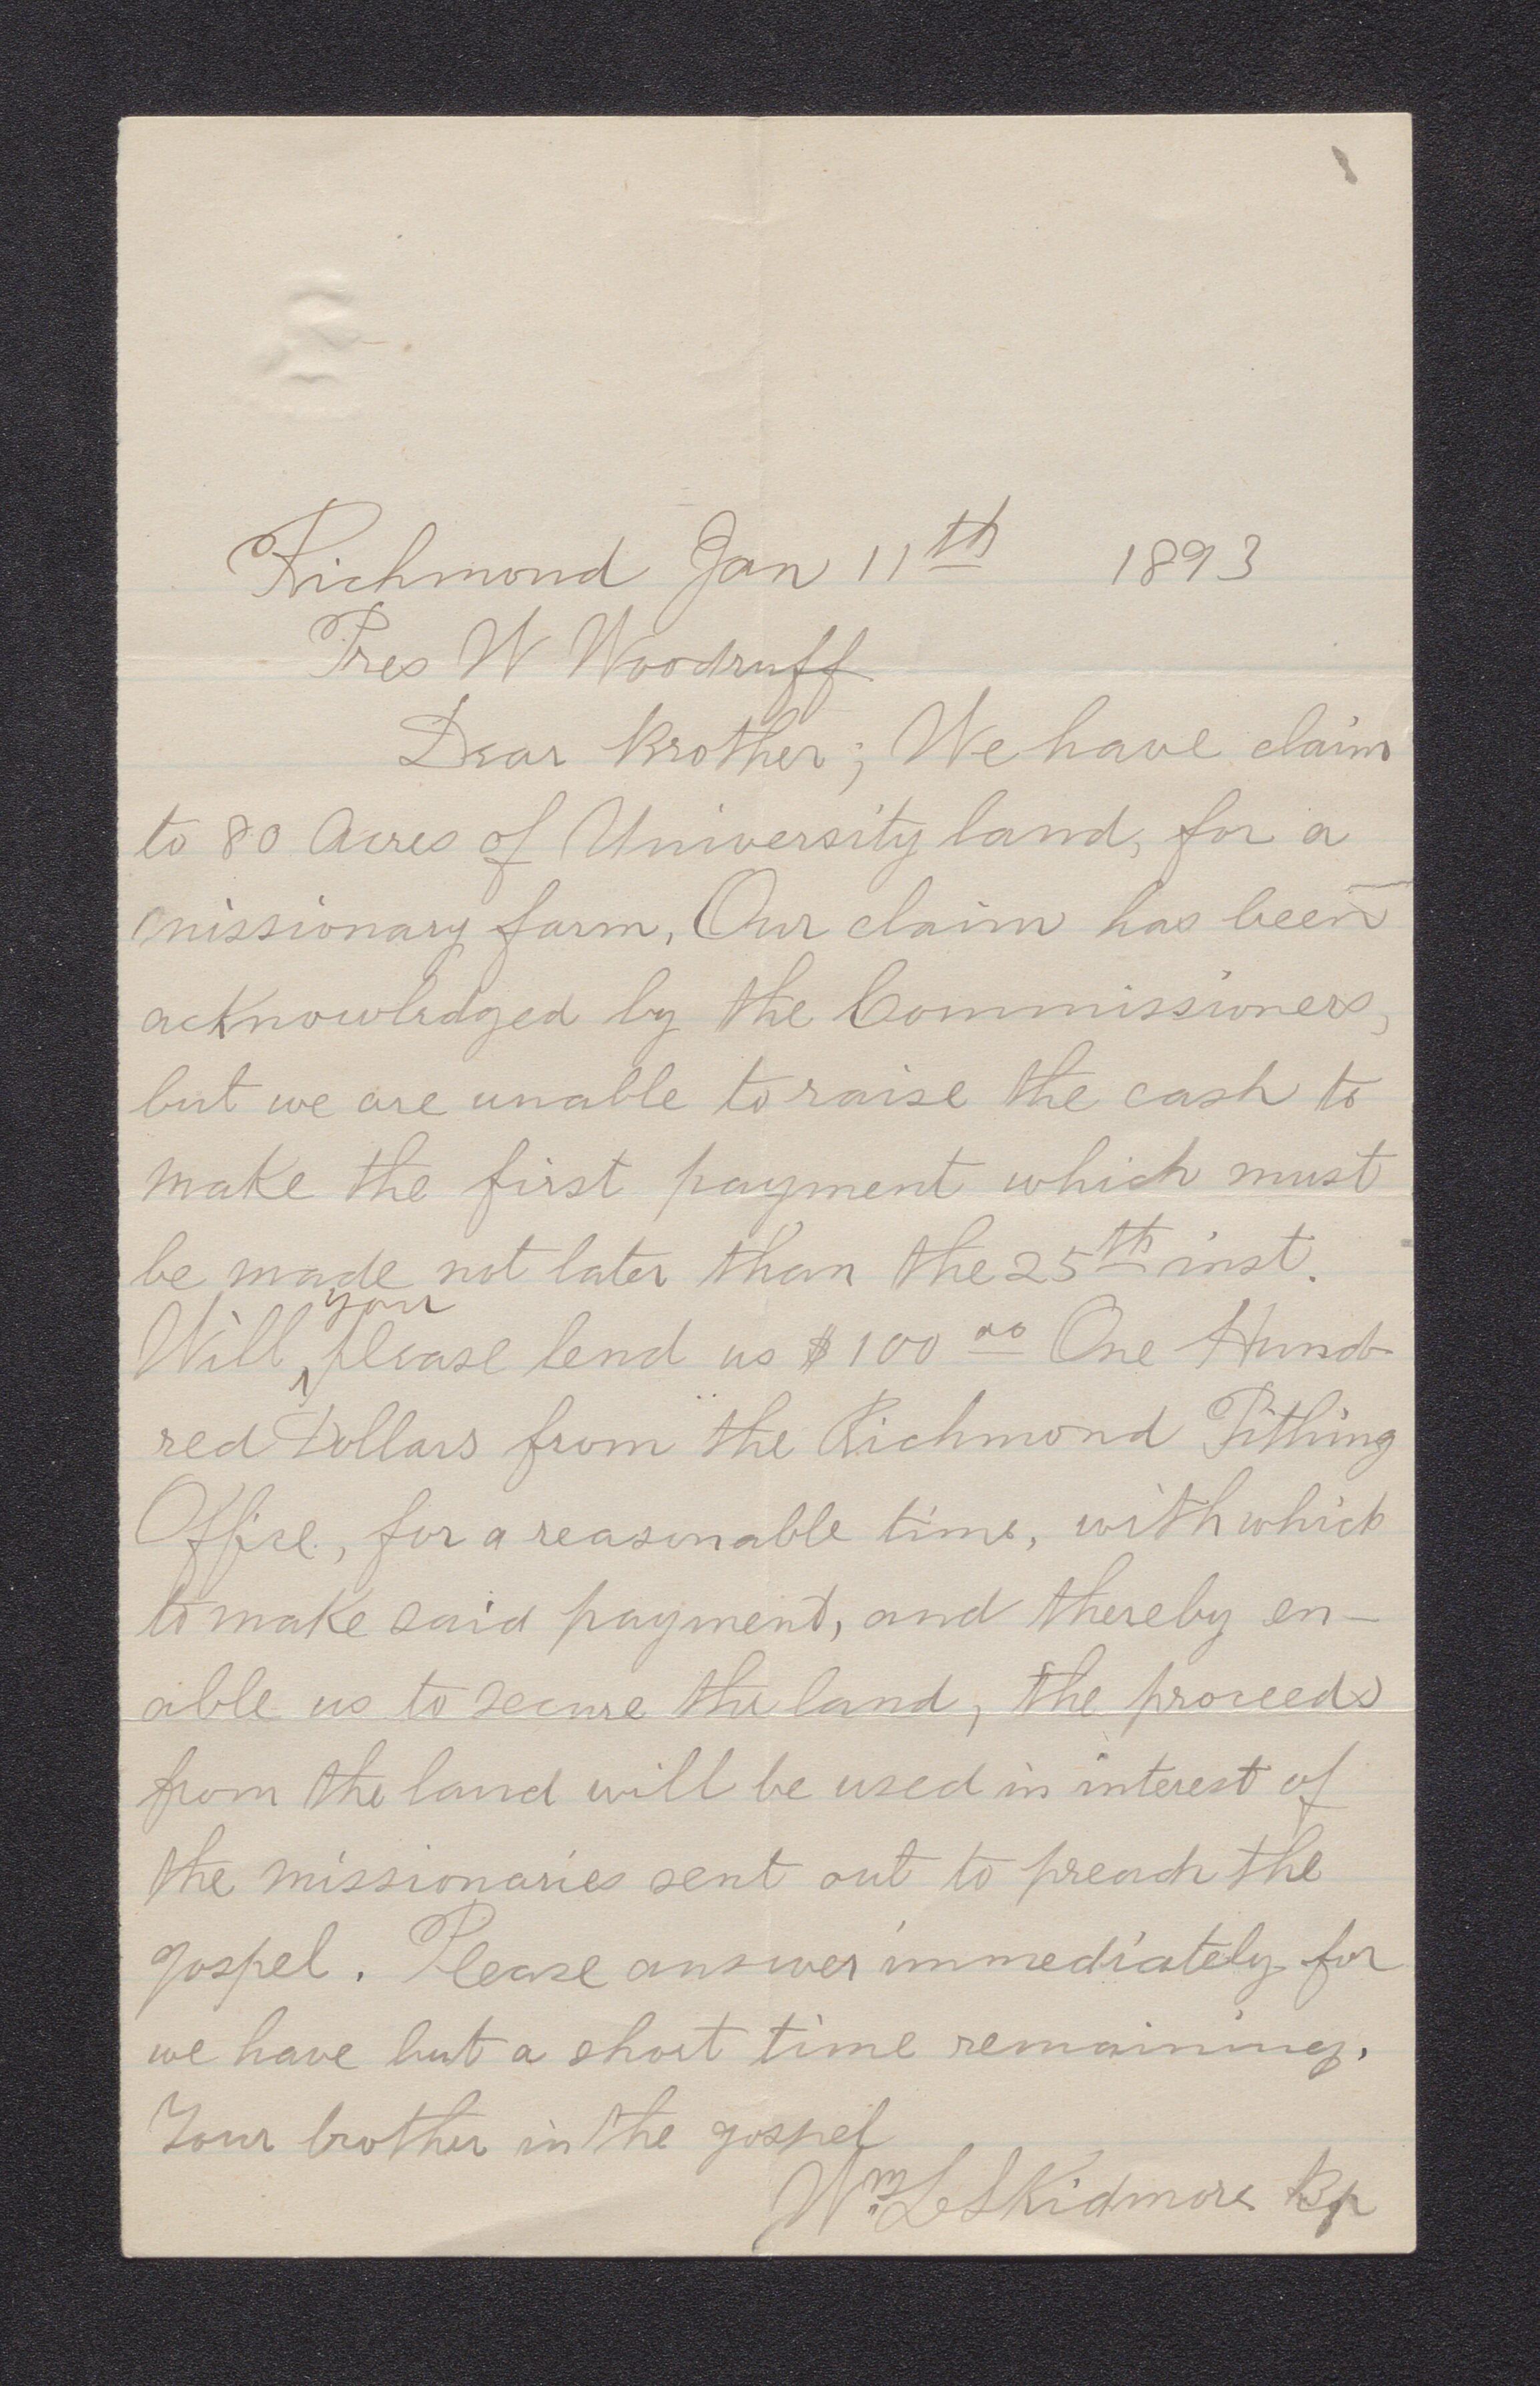 Richmond Jan 11th 1893
Pres W Woodruff
Dear Brother; We have claim
to 80 Acres of University land, for a
missionary farm, Our claim has been
acknowledged by the Commissioners,
but we are unable to raise the cash to
make the first payment which must
be made not later than the 25th inst.
you
Will ^ please lend us $100 00 One Hund-
red Dollars from the Richmond Tithing
Office, for a reasonable time, with which
to make said payment, and thereby en-
able us to secure the land, the proceeds
from the land will be used in interest of
the missionaries sent out to preach the
gospel. Please answer immediately for
we have but a short time remaining.
Your brother in the gospel
Wm L Skidmore Bp